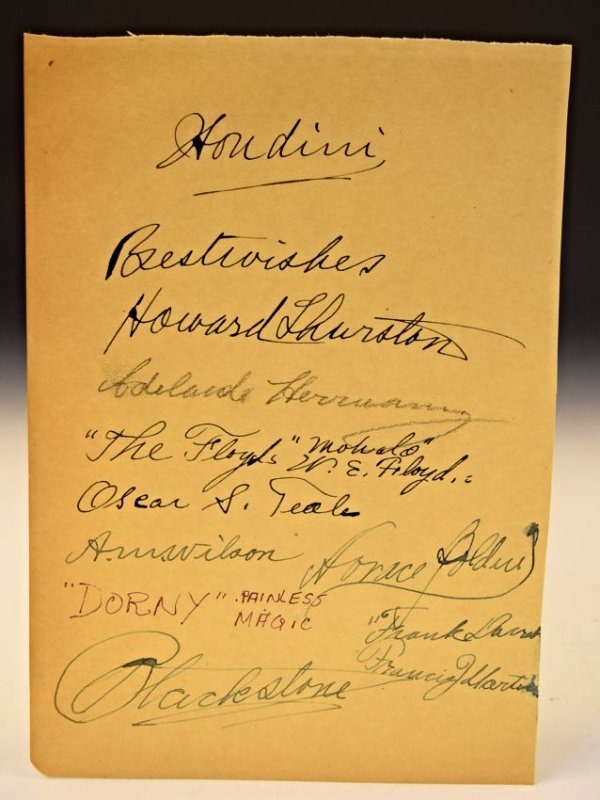 Houdini
Best wishes
Howard Thurston
Adelaide Herrmann
"The Floyds" "Mohala"
W. E. Floyd.
Oscar S. Teale
A.M. Wilson
Horace Goldin
"DORNY" PAINLESS
MAGIC
"Frank
Francis J. Martin
Blackstone